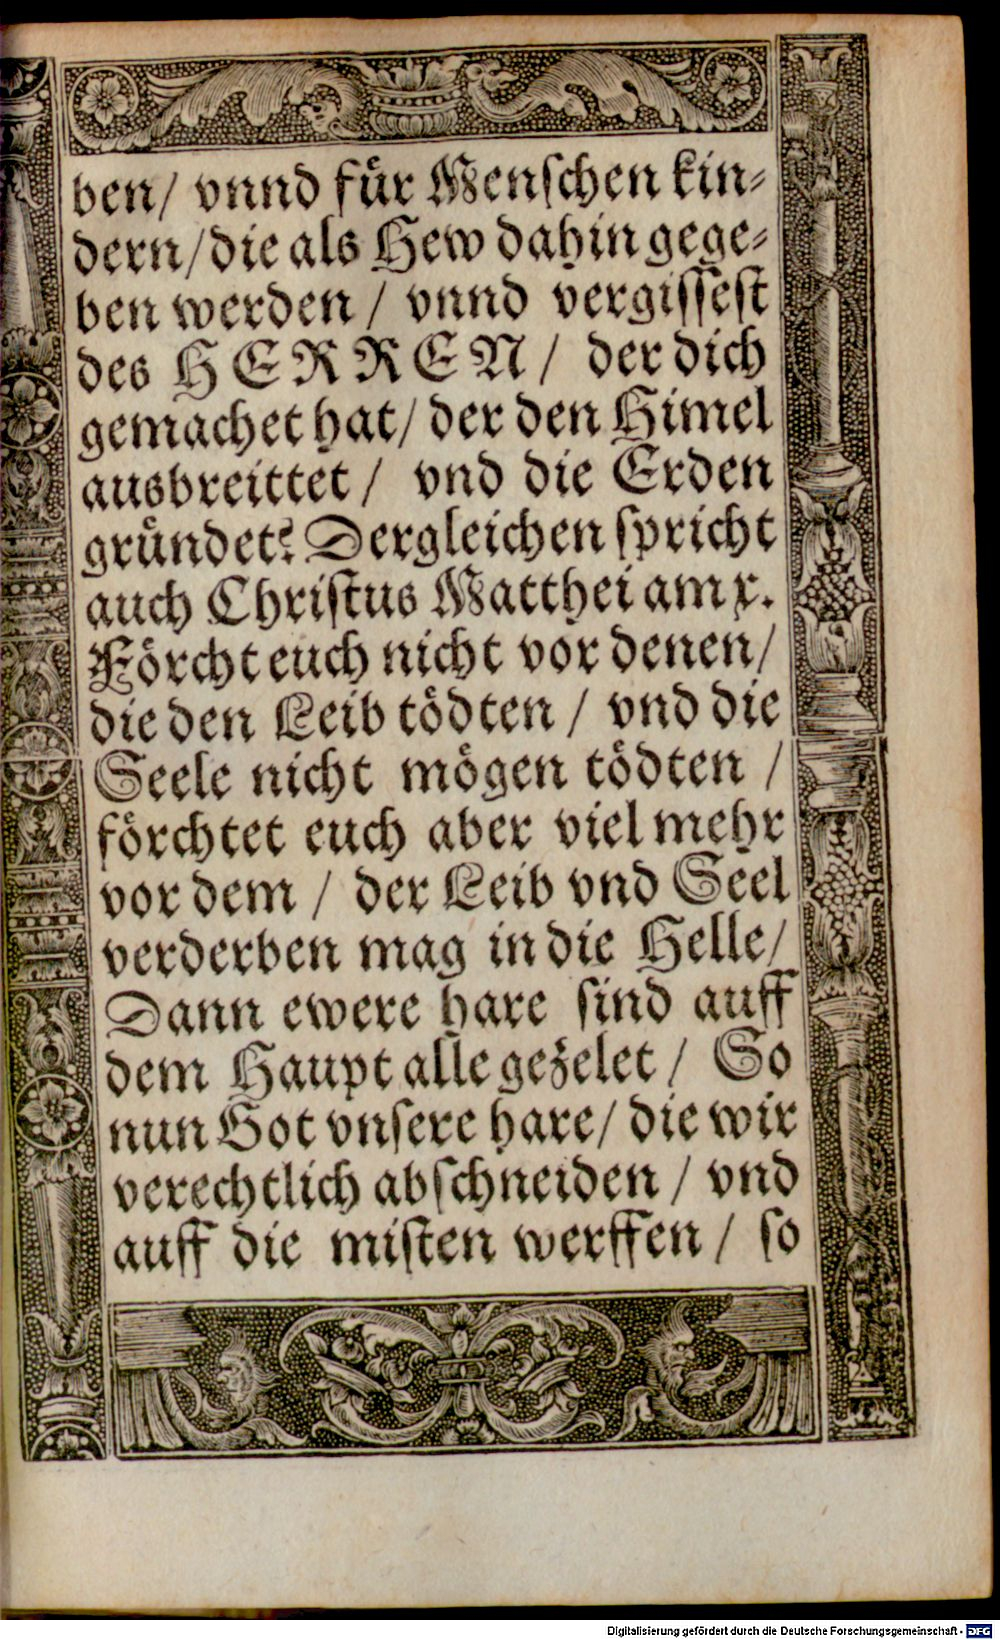 ben/ vnnd fůr Menſchen kin⸗
dern/die als Hew dahin gege⸗
ben werden / vnnd vergiſſeſt
des HERREN / der dich
gemachet hat/ der den Himel
ausbreittet / vnd die Erden
gründet? Dergleichen ſpricht
auch Chriſtus Matthei am x.
Förcht euch nicht vor denen/
die den Leib tödten / vnd die
Seele nicht mögen tödten /
förchtet euch aber viel mehr
vor dem / der Leib vnd Seel
verderben mag in die Helle/
Dann ewere hare ſind auff
dem Haupt alle gezelet / So
nun Got vnſere hare/ die wir
verechtlich abſchneiden / vnd
auff die miſten werffen / ſo
Digitalisierung gefördert durch die Deutsche Forschungsgemeinschaft - DFG